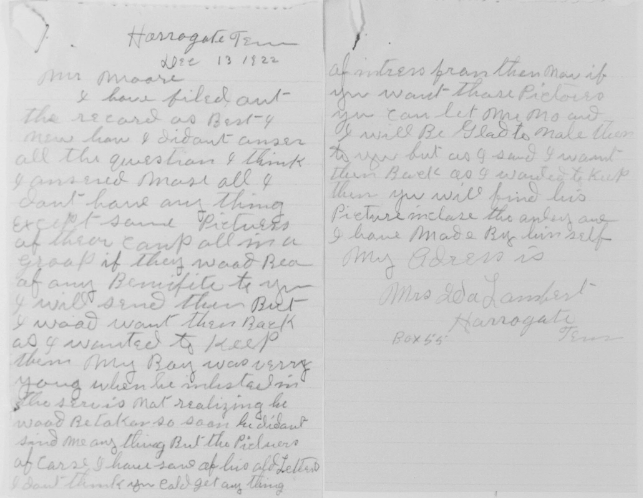 Harrogate Tenn
Dec 13 1922
Mr Moore
I have filed out
the record as Best I
new how I didant anser
all the question I think
I ansered most all I
dont have any thing
Except some Pictures
of their camp all in a
Groop if they wood Bea
of any Benifite to you
I will send them But
I wood want them Back
as I wanted to Keep
them My Boy was verry
young when he inlisted in
the servis not realizing he
wood Be taken so soon he didant
send me any thing But the Pictures
of Corse I have som of his old Letters
I dont think you cold get any thing
of intress from them now if
you want those Pictures
you can let me no and
I will Be Glad to male them
to you but as I said I want
them Back as I wanted to Keep
them you will find his
Picture inclose the only one
I have Made By him self
My Adress is
Mrs Ida Lambert
Harrogate
Box 55 Tenn